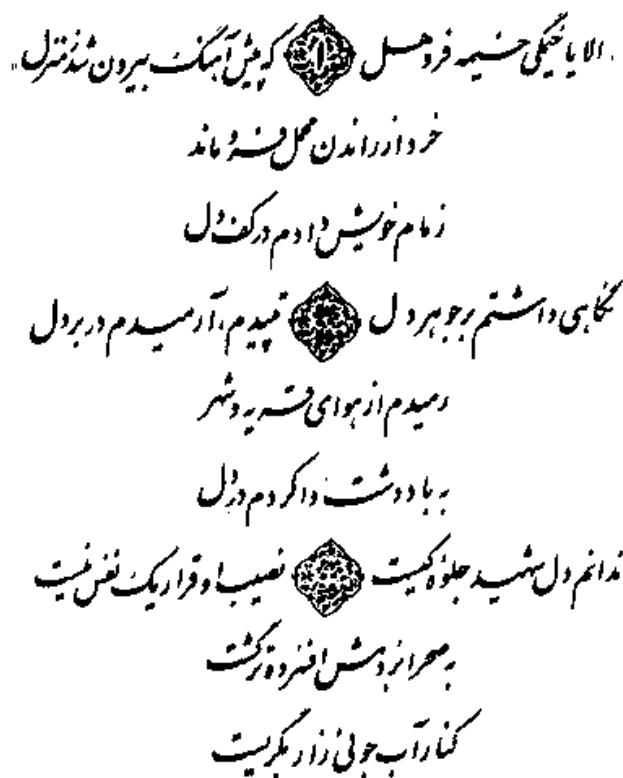 الا یا خیمگی خیمه فروهل که پیش آهنگ بیرون شد ز منزل
خرد از راندن محمل فرو ماند
زمام خویش دادم در کف دل
نگاهی داشتم بر جوهر دل تپیدم، آرمیدم در بر دل
رمیدم از هوای قریه و شهر
به باد دشت وا کردم در دل
ندانم دل شهید جلوهٔ کیست نصیب او قرار یک نفس نیست
به صحرا بردمش افسرده تر گشت
کنار آب جوئی زار بگریست